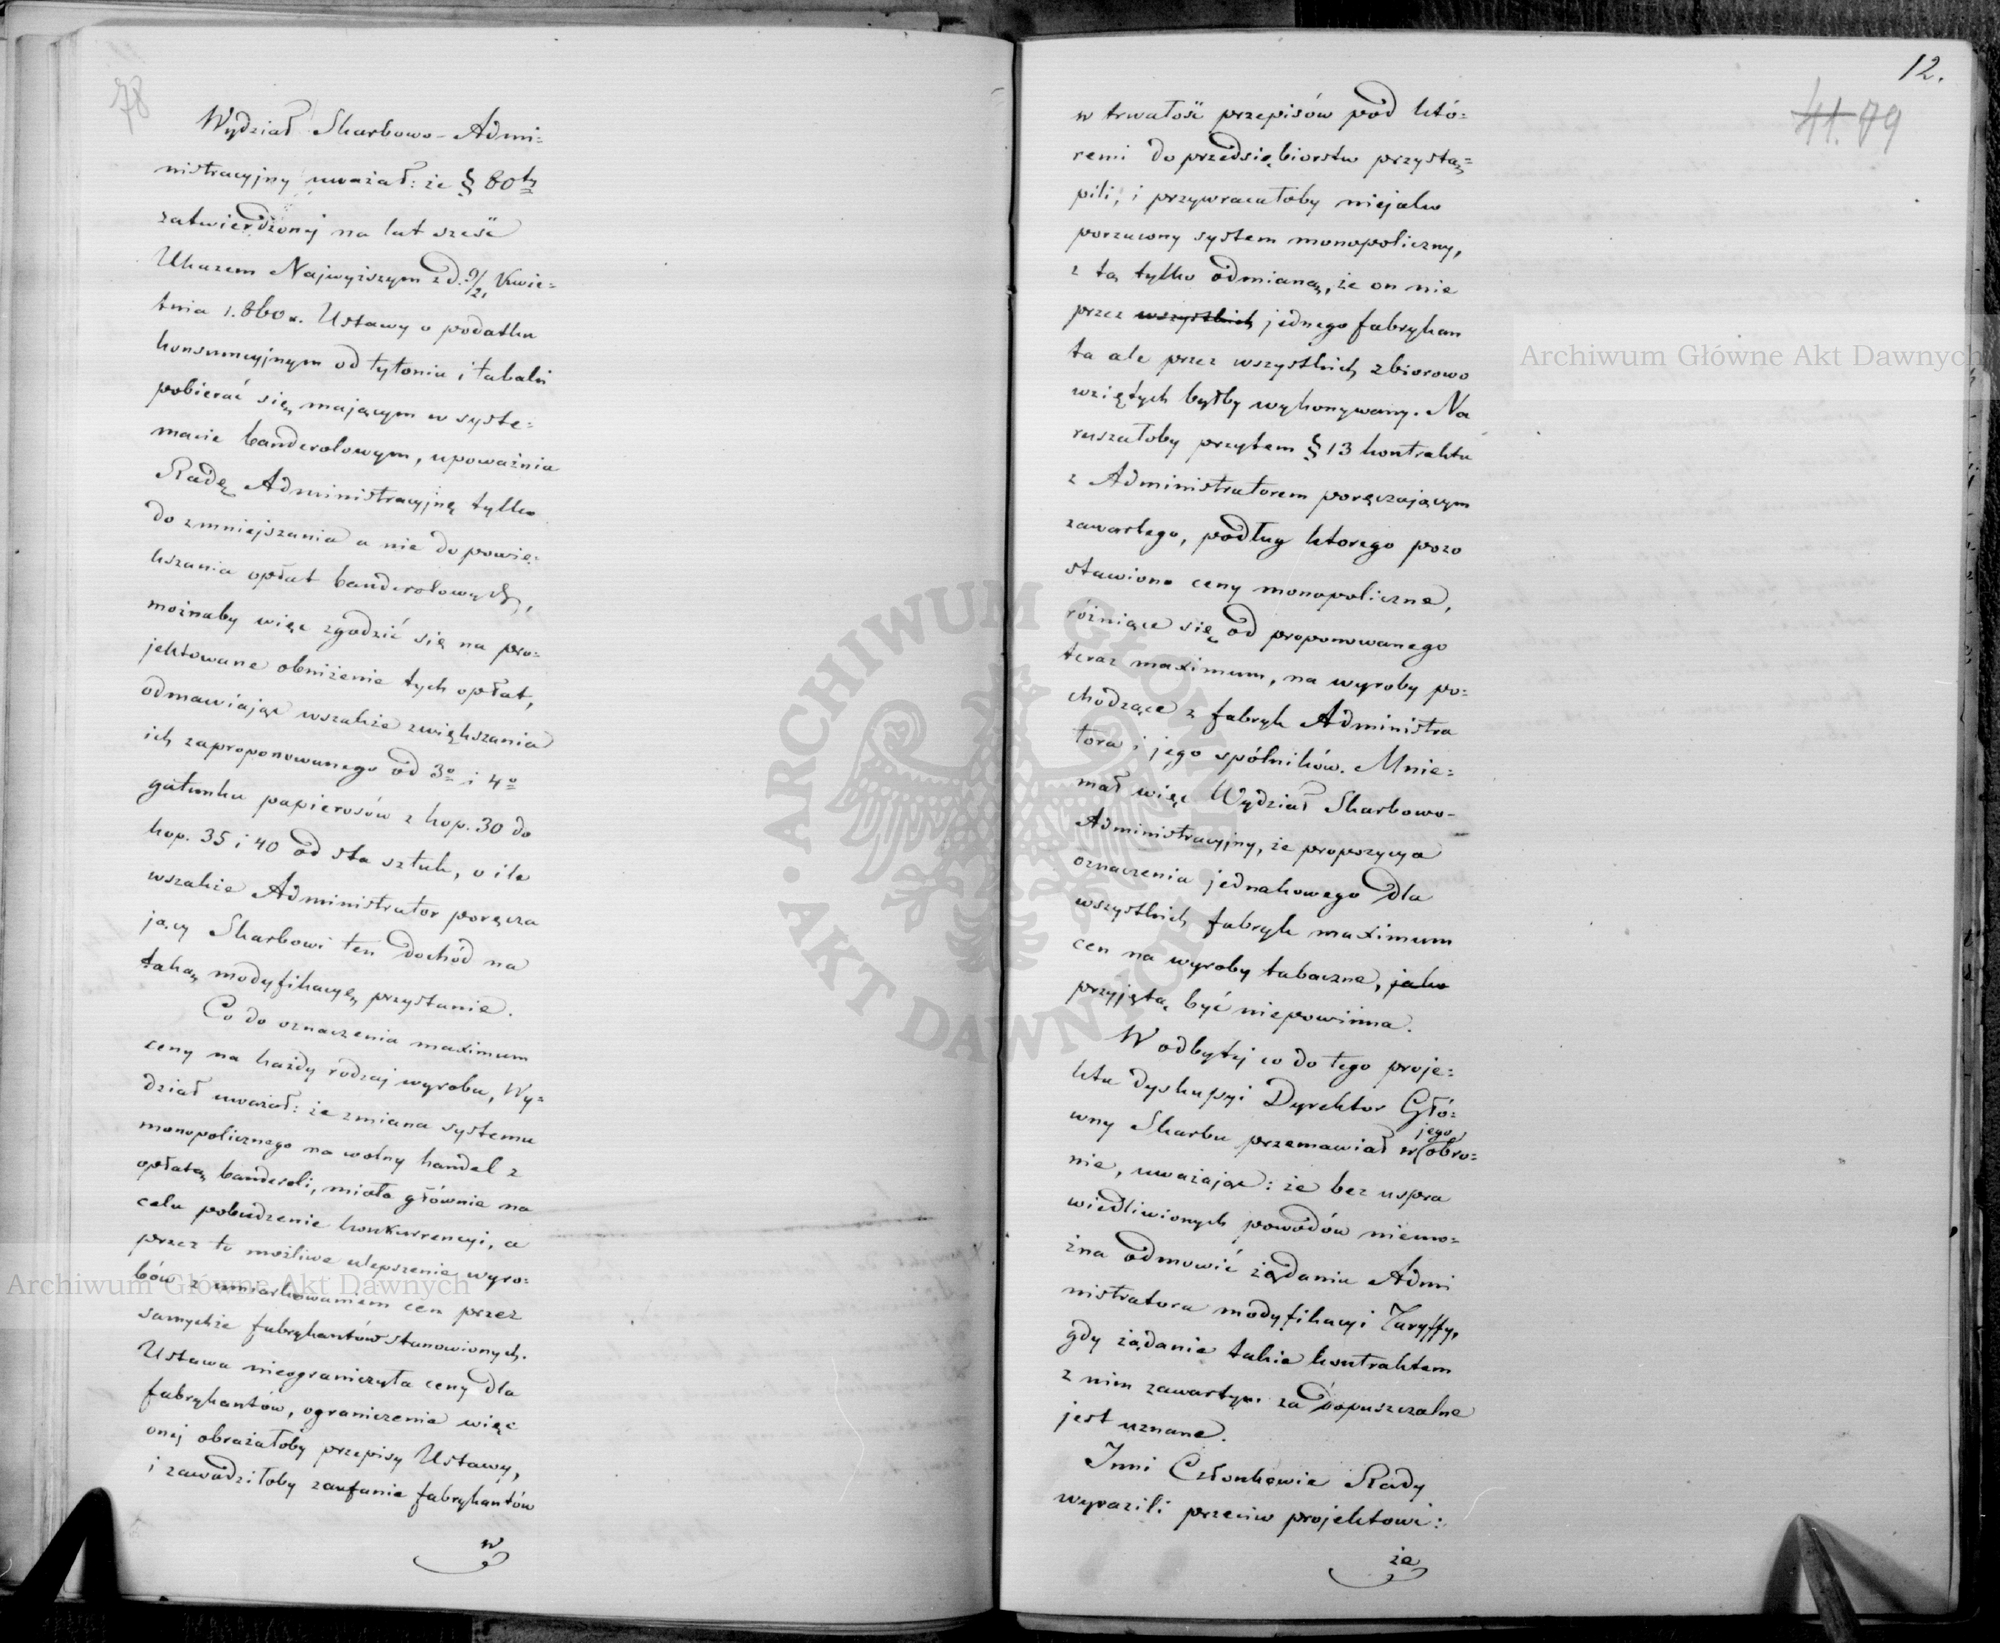 78
Wydział Skarbowo-Admi=
nistracyjny uważał: że § 80ty
zatwierdzonej na lat sześć
Ukazem Najwyższym z d. 9/21 Kwie=
tnia 1.860 r. Ustawy o podatku
konsumcyjnym od tytoniu i tabaki
pobierać się mającym w syste=
macie banderolowym, upoważnia
Radę Administracyjną tylko
do zmniejszania a nie do powię=
kszania opłat banderolowych,
możnaby więc zgodzić się na pro=
jektowane obniżenie tych opłat,
odmawiając wszakże zwiększania
ich zaproponowanego od 3o i 4o
gatunku papierosów z kop. 30 do
kop. 35 i 40 od sta sztuk, o ile
wszakże Administrator poręcza
jący Skarbowi ten dochód na
taką modyfikacyę przystanie.
Co do oznaczenia maximum
ceny na każdy rodzaj wyrobu, Wy=
dział uważał: że zmiana systemu
monopolicznego na wolny handel z
opłatą banderoli, miała głównie na
celu pobudzenie konkurrencyi, a
przez to możliwe ulepszenie wyro=
bów z umiarkowaniem cen przez
samychże fabrykantów stanowionych.
Ustawa nieograniczyła ceny dla
fabrykantów, ograniczenie więc
onej obrażałoby przepisy Ustawy,
i zawadziłoby zaufanie fabrykantów
w
12.
41. 79
w trwałość przepisów pod któ=
remi do przedsiębiorstw przystą=
pili, i przywracałoby niejako
porzucony system monopoliczny,
z tą tylko odmianą, że on nie
przez wszystkich jednego fabrykan
ta ale przez wszystkich zbiorowo
wziętych byłby wykonywany. Na
ruszałoby przytem § 13 kontraktu
z Administratorem poręczającym
zawartego, podług ktorego pozo
stawiono ceny monopoliczne,
różniące się od proponowanego
teraz maximum, na wyroby po=
chodzące z fabryk Administra
tora i jego spólników. Mnie=
mał więc Wydział Skarbowo-
Administracyjny, że propozycya
oznaczenia jednakowego dla
wszystkich fabryk maximum
cen na wyroby tabaczne, jako
przyjętą być niepowinna.
W odbytej co do tego proje=
ktu dyskusyi Dyrektor Głó=
wny Skarbu przemawiał w jego obro=
nie, uważając: że bez uspra
wiedliwionych powodów niemo=
żna odmowić żądaniu Admi
nistratora modyfikacyi Taryffy,
gdy żądanie takie kontraktem
z nim zawartym za dopuszczalne
jest uznane.
Inni Członkowie Rady
wyrazili przeciw projektowi:
że
Archiwum Główne Akt Dawnych
Archiwum Główne Akt Dawnych
ARCHIWUM GŁÓWNE · AKT DAWNYCH ·